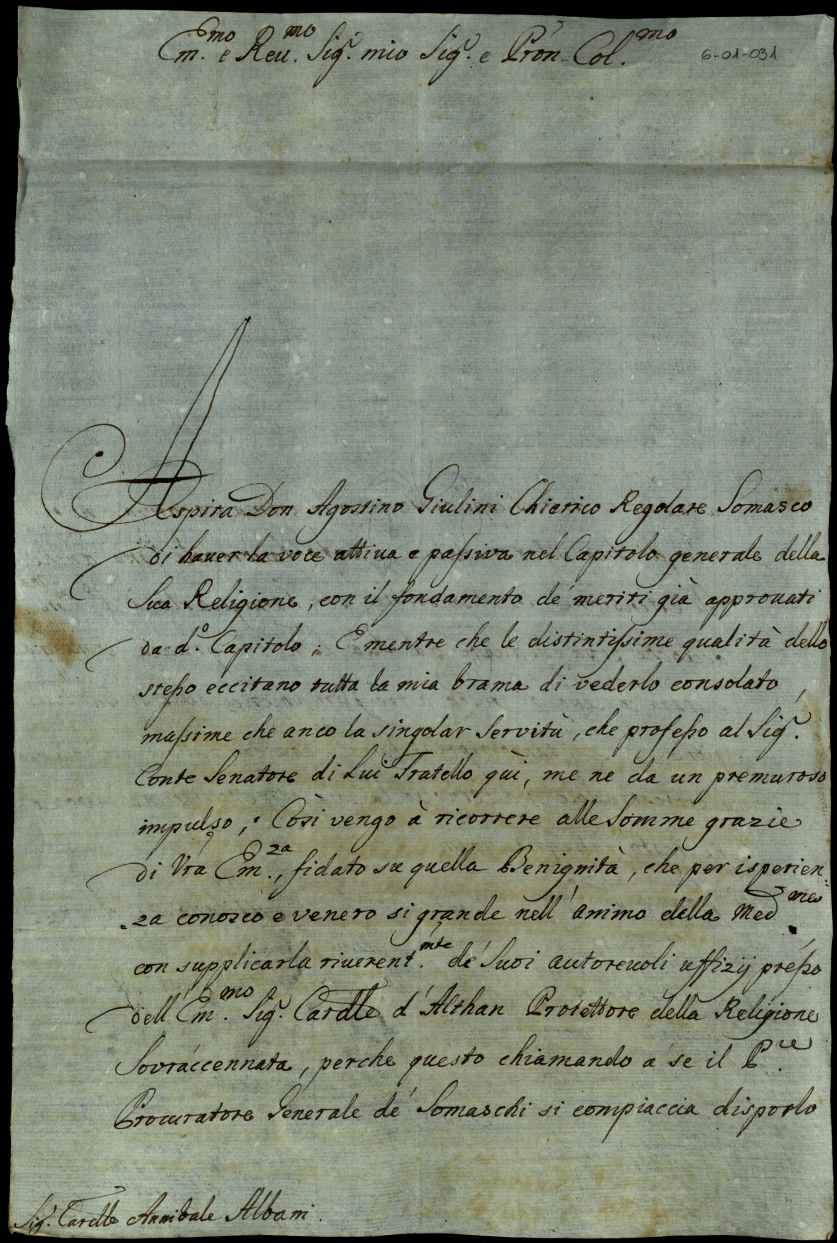 Em.mo e Reu.mo Sig.r mio Sig.r e Pròn Col.mo
6-01-031
Aspira Don Agostino Giulini Chierico Regolare Somasco
di hauer la voce attiua e passiva nel Capitolo generale della
Sua Religione, con il fondamento de' meriti già approuati
da d.o Capitolo; E mentre che le distintissime qualità dello
stesso eccitano tutta la mia brama di vederlo consolato,
massime che anco la singolar Servitù, che professo al Sig.r
Conte Senatore di Lui Fratello qùi, me ne da un premuroso
impulso, Così vengo à ricorrere alle Somme grazie
di Vrà Em.za, fidato su quella Benignità, che per isperien-
za conosco e venero si grande nell'animo della Med.me
con supplicarla riuerent.mte de' Suoi autoreuoli uffizij presso
dell'Em.mo Sig.r Cardlle d'Althan Protettore della Religione
Sovràccennata, perche questo chiamando a se il P.re
Procuratore Generale de' Somaschi si compiaccia disporlo
Sig.r Cardlle Annibale Albani.